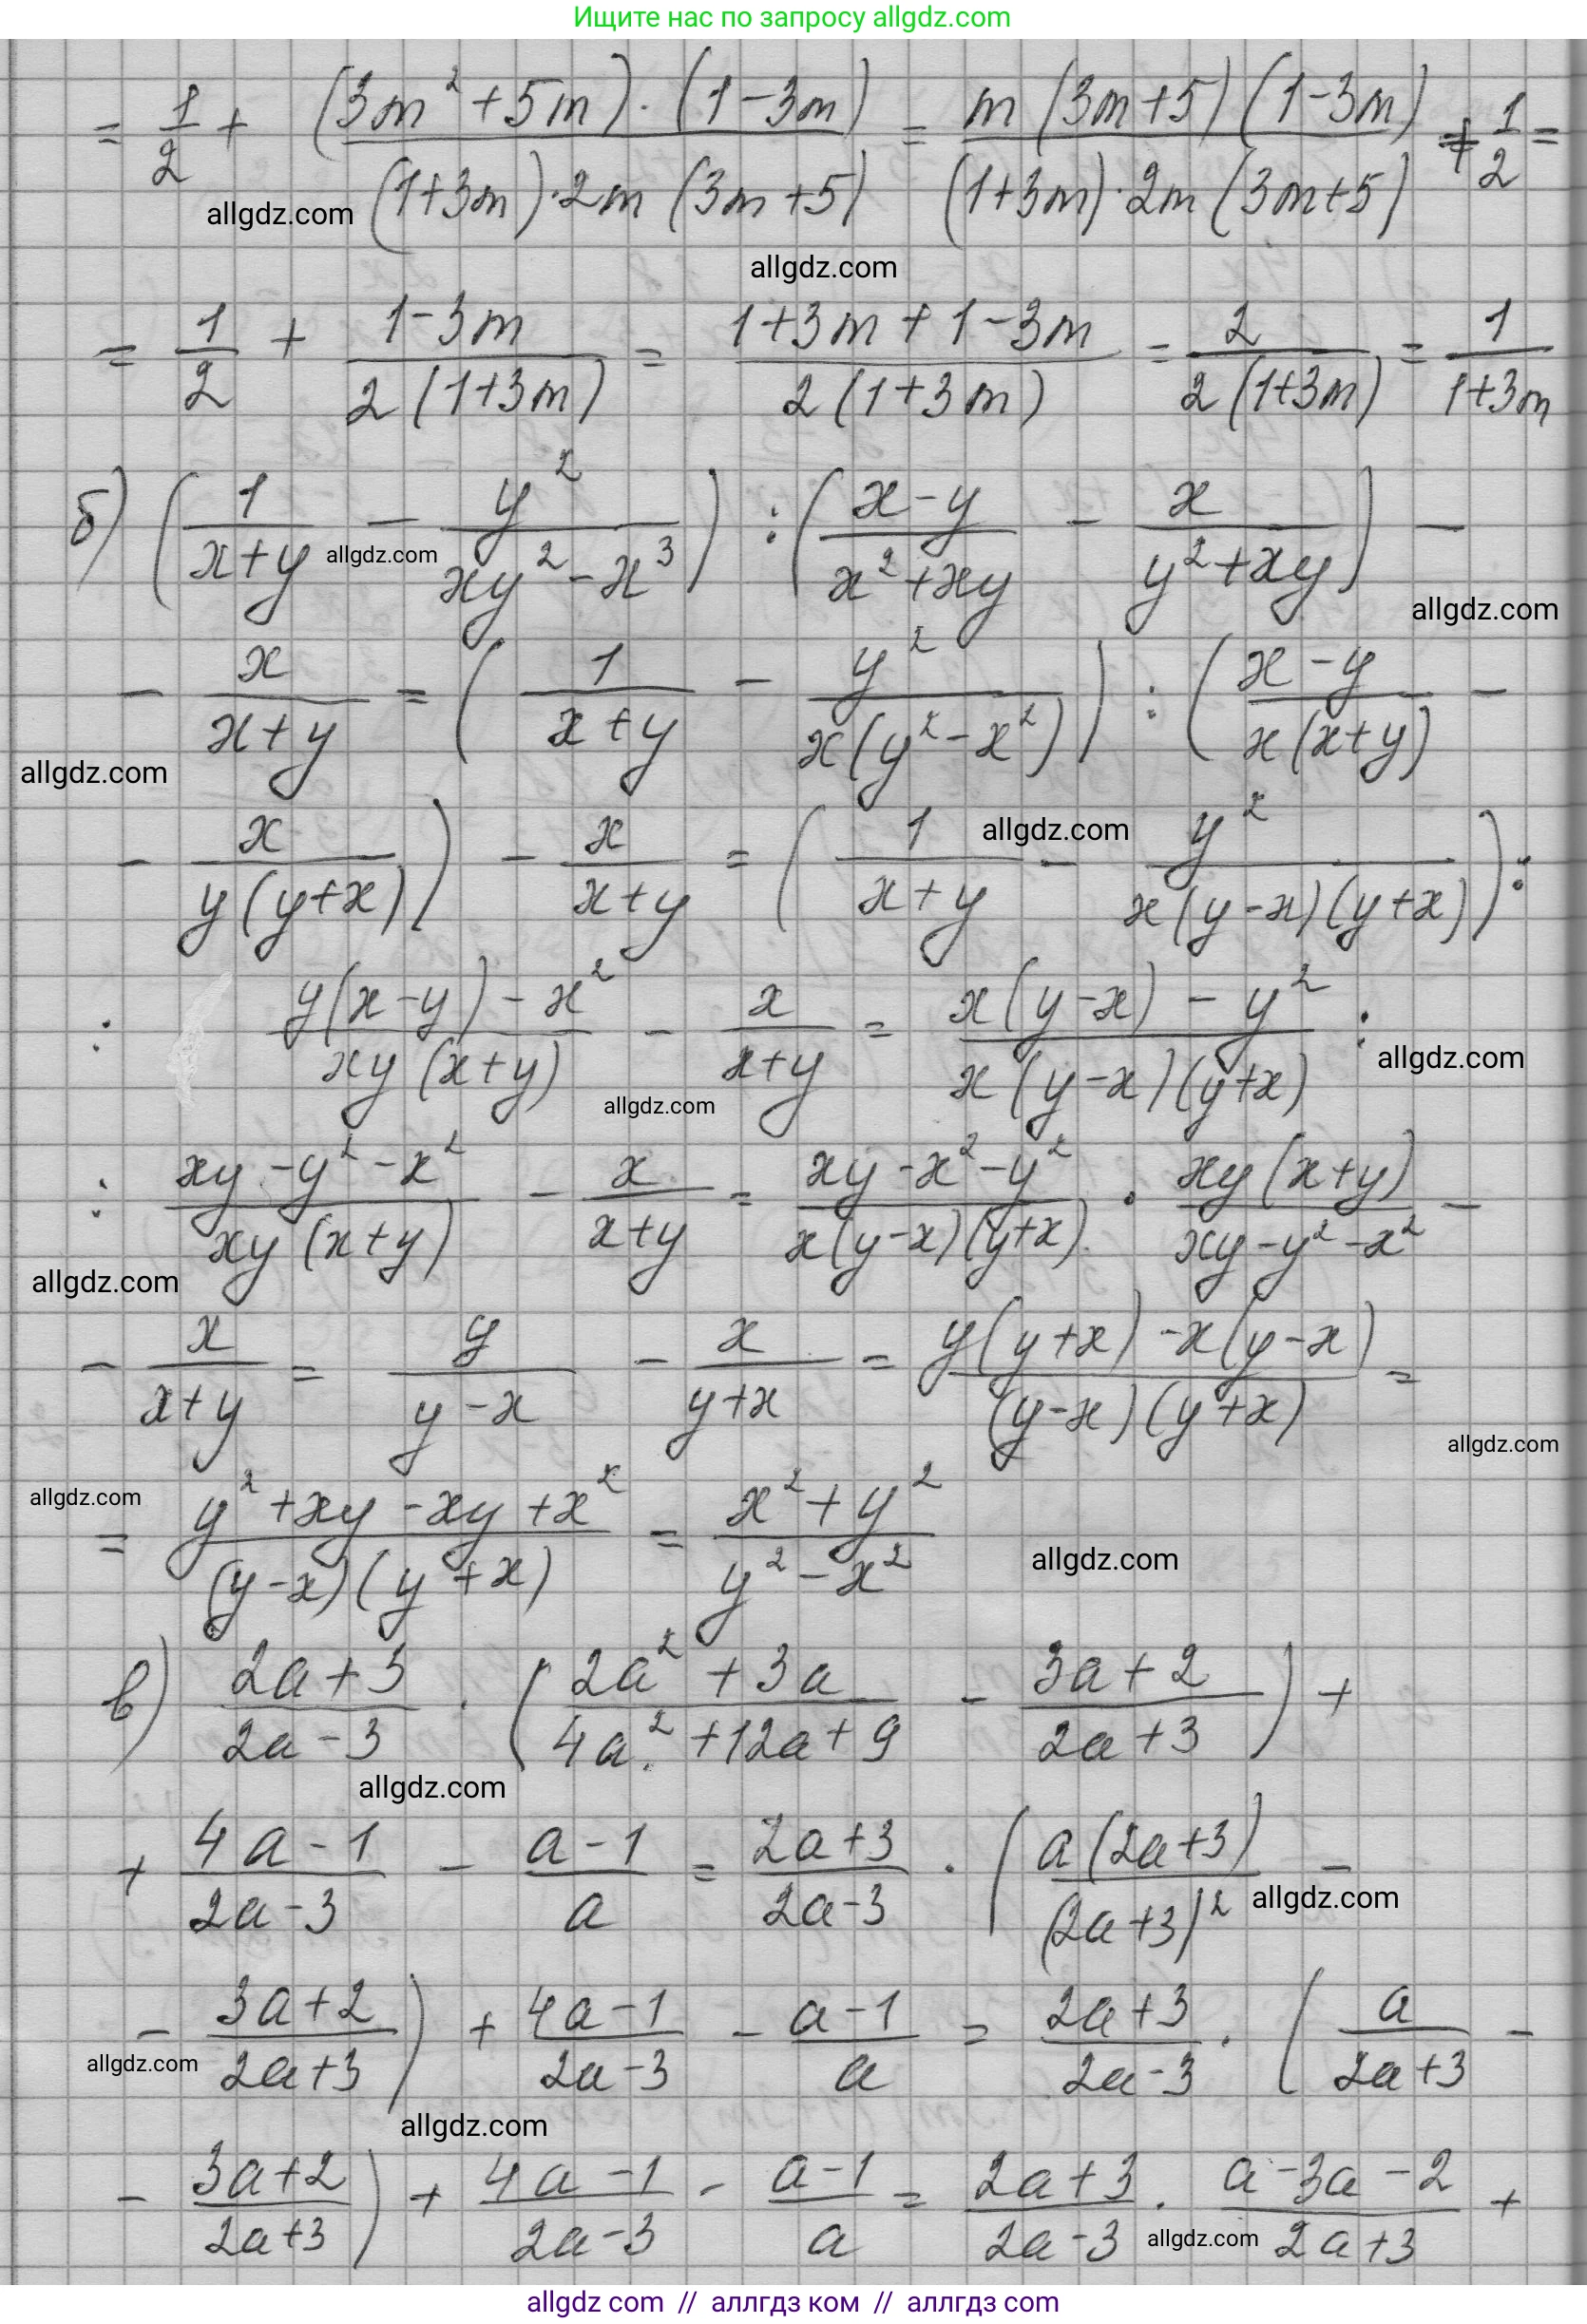 Ищите нас по запросу allgdz.com
= 1/2 + ((3m² + 5m) · (1 - 3m))/((1+3m) · 2m (3m+5)) = (m (3m+5) (1-3m))/((1+3m) · 2m (3m+5)) + 1/2 =
allgdz.com
allgdz.com
= 1/2 + (1-3m)/(2(1+3m)) = (1+3m+1-3m)/(2(1+3m)) = 2/(2(1+3m)) = 1/(1+3m)
б) (1/(x+y) - y²/(xy²-x³)) : ((x-y)/(x²+xy) - x/(y²+xy)) -
allgdz.com
allgdz.com
- x/(x+y) = (1/(x+y) - y²/(x(y²-x²))) : ((x-y)/(x(x+y)) -
allgdz.com
- x/(y(y+x))) - x/(x+y) = (1/(x+y) - y²/(x(y-x)(y+x))) :
allgdz.com
: (y(x-y)-x²)/(xy(x+y)) - x/(x+y) = (x(y-x)-y²)/(x(y-x)(y+x)) :
allgdz.com
allgdz.com
: (xy-y²-x²)/(xy(x+y)) - x/(x+y) = (xy-x²-y²)/(x(y-x)(y+x)) · (xy(x+y))/(xy-y²-x²) -
allgdz.com
- x/(x+y) = y/(y-x) - x/(y+x) = (y(y+x)-x(y-x))/((y-x)(y+x)) =
allgdz.com
allgdz.com
= (y²+xy-xy+x²)/((y-x)(y+x)) = (x²+y²)/(y²-x²)
allgdz.com
в) (2a+3)/(2a-3) · ((2a²+3a)/(4a²+12a+9) - (3a+2)/(2a+3)) +
allgdz.com
+ (4a-1)/(2a-3) - (a-1)/a = (2a+3)/(2a-3) · (a(2a+3)/(2a+3)² -
allgdz.com
- (3a+2)/(2a+3)) + (4a-1)/(2a-3) - (a-1)/a = (2a+3)/(2a-3) · (a/(2a+3) -
allgdz.com
allgdz.com
- (3a+2)/(2a+3)) + (4a-1)/(2a-3) - (a-1)/a = (2a+3)/(2a-3) · (a-3a-2)/(2a+3) +
allgdz.com
allgdz com // аллгдз ком // аллгдз com